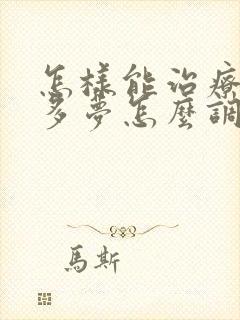 怎樣能治療
多夢怎麼調
馬斯